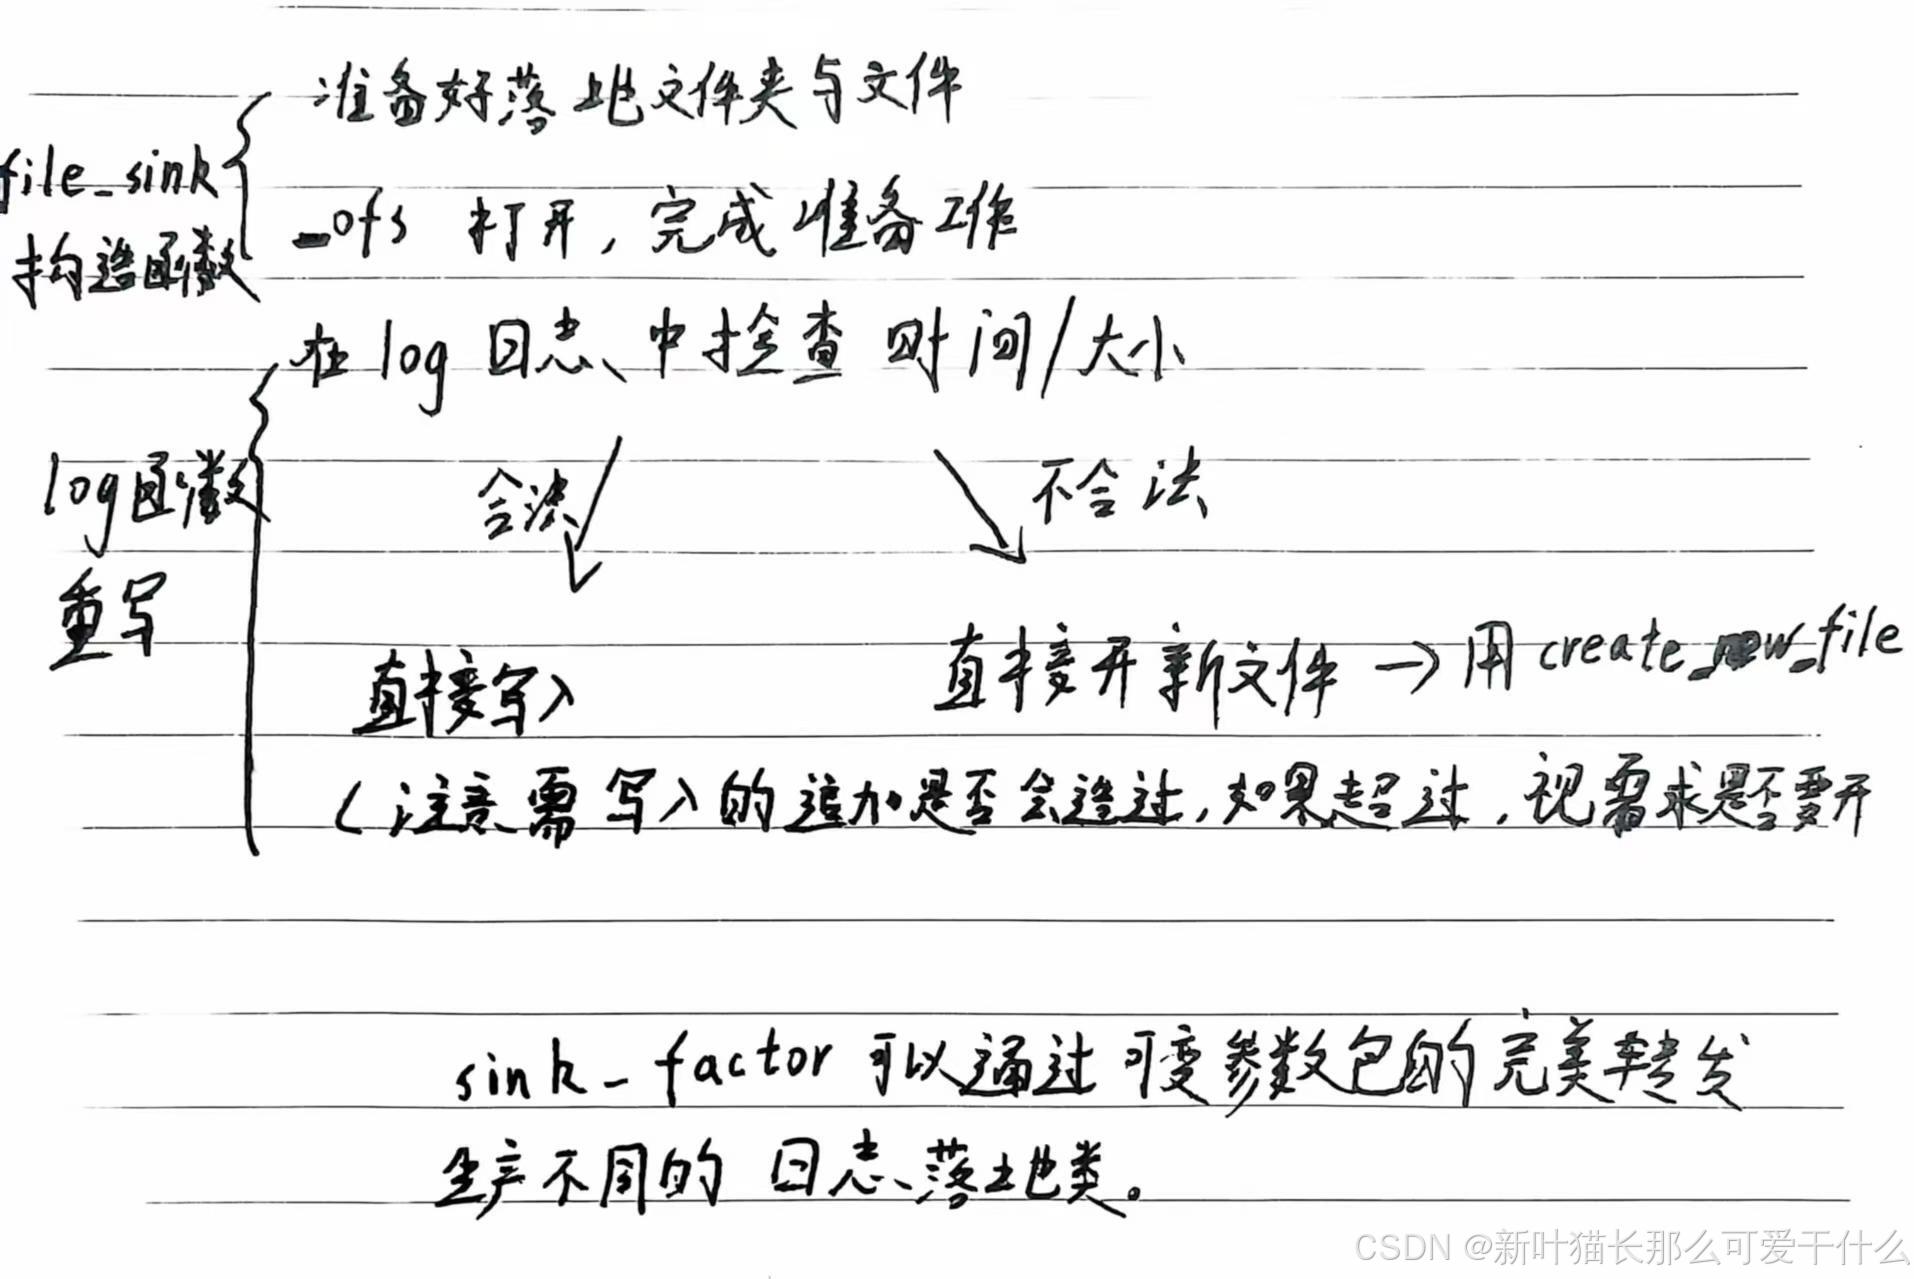 准备好落地文件夹与文件
file_sink
构造函数
_ofs 打开,完成准备工作
在log 日志中检查 时间/大小
log函数
重写
合法
不合法
直接写入
直接开新文件 → 用 create_new_file
(注意需写入的追加是否会超过,如果超过,视需求是否要开
sink_factor 可以通过可变参数包的完美转发
生产不同的 日志落地类。
CSDN @新叶猫长那么可爱干什么